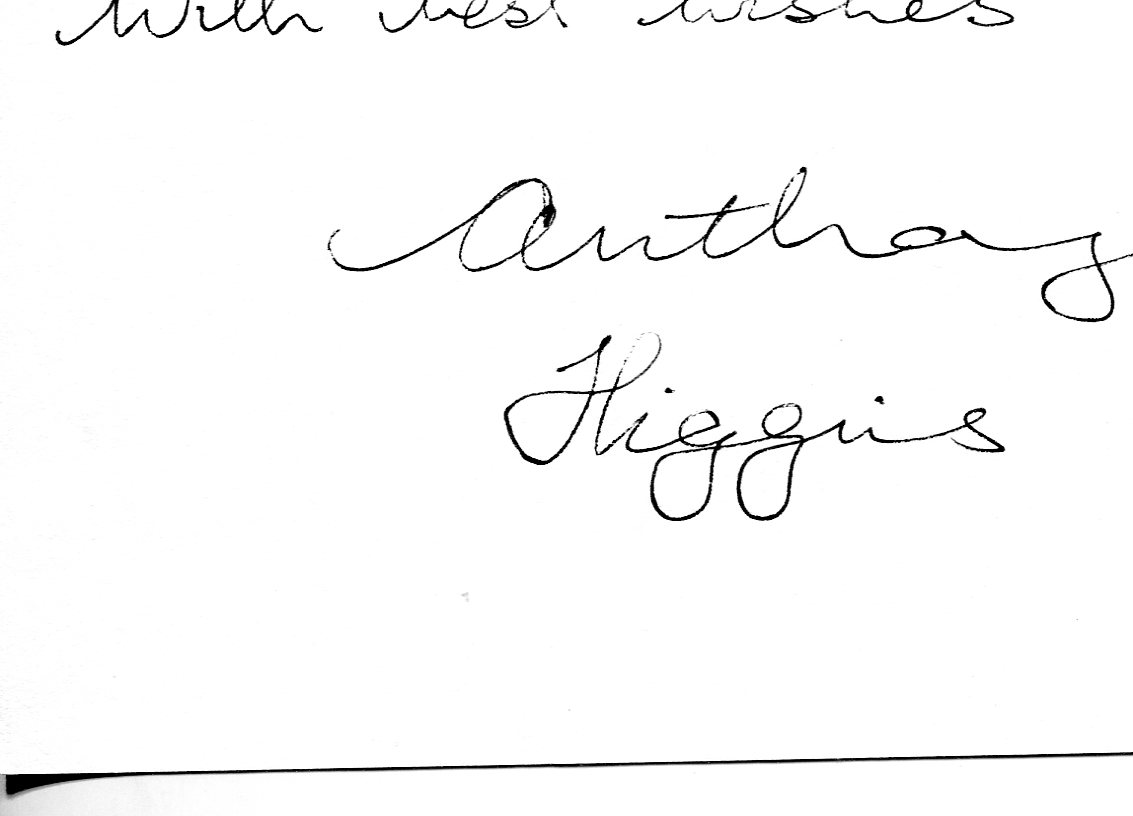 With best wishes
Anthony
Higgins